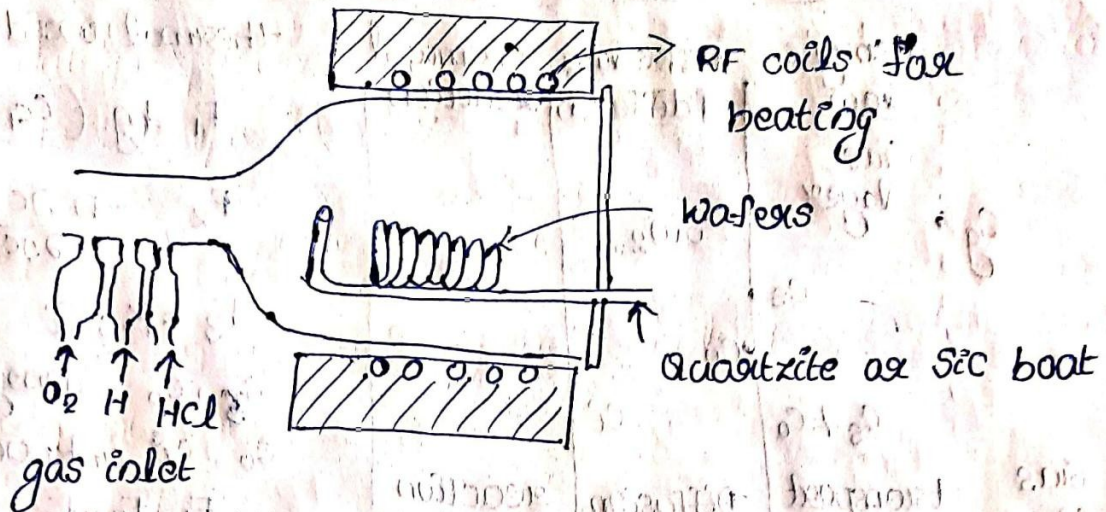 RF coils for
heating
wafers
Quartzite or SiC boat
O2 H HCl
gas inlet